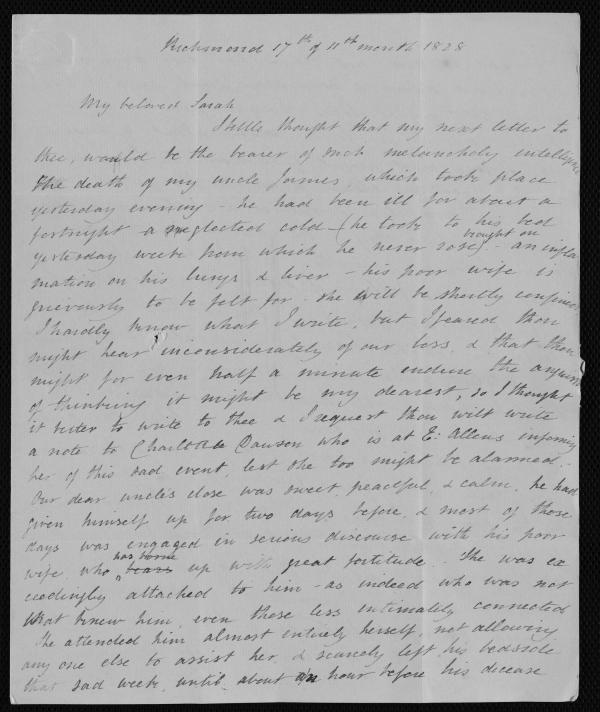 Richmond 17th of 11th month 1828
My beloved Sarah
I little thought that my next letter to
thee, would be the bearer of such melancholy intelligence
the death of my uncle James, which took place
yesterday evening – he had been ill for about a
fortnight – a neglected cold – (he took to his bed
yesterday week from which he never rose) – brought on an infla
mation on his lungs & liver – his poor wife is
grievously to be felt for – she will be shortly confined
I hardly know what I write, but I feared thou
might hear inconsiderately of our loss, & that thou
might for even half a minute endure the anguish
of thinking it might be my dearest, so I thought
it better to write to thee & I request thou wilt write
a note to Charlotte Dawson who is at E: Allens informing
her of this sad event, lest she too might be alarmed.
Our dear uncle's close was sweet, peaceful, & calm, he had
given himself up for two days before, & most of those
days was engaged in serious discourse with his poor
wife, who has borne bears up with great fortitude. She was ex
ceedingly attached to him – as indeed who was not
that knew him, even those less intimately connected
She attended him almost entirely herself, not allowing
any one else to assist her, & scarcely left his bedside
that sad week, until about an hour before his decease